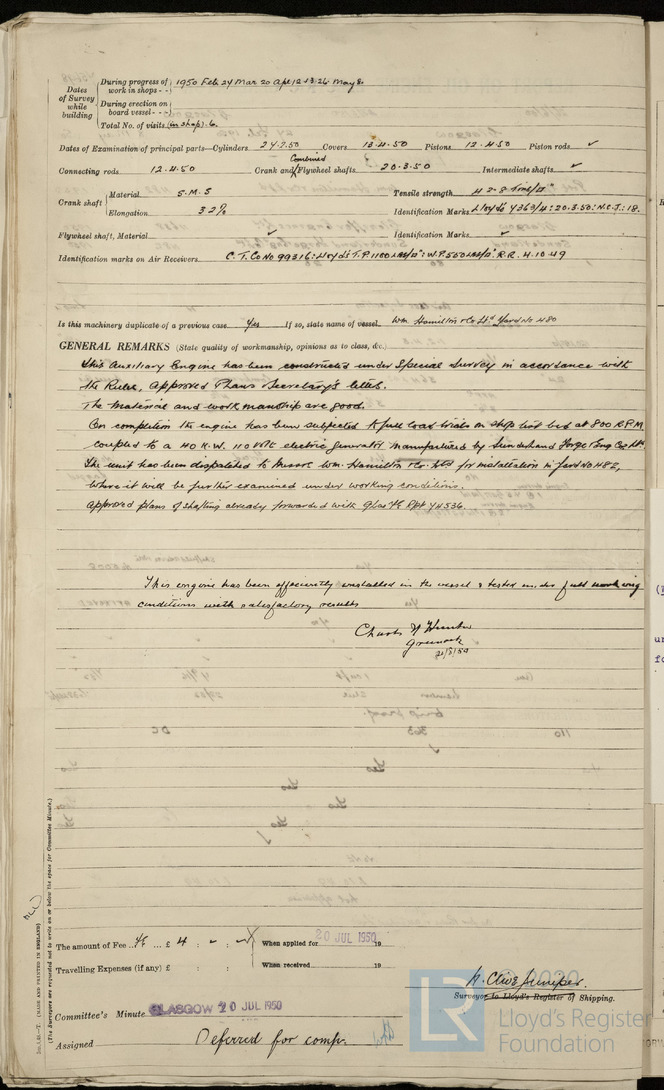 Dates of Survey while building
During progress of work in shops - - 1950 Feb 24 Mar 20 Apl 12 13 26 May 8
During erection on board vessel - - -
Total No. of visits (in shop) 6.
Dates of Examination of principal parts—Cylinders 24.2.50 Covers 13.4.50 Pistons 12.4.50 Piston rods ✓
Connecting rods 12.4.50 Crank and Combined Flywheel shafts 20.3.50 Intermediate shafts ✓
Crank shaft Material S.M.S Tensile strength 42.8 Tons/□"
Elongation 32% Identification Marks Lloyd's 4369/4: 20.3.50: N.C.J: 18.
Flywheel shaft, Material ✓ Identification Marks ✓
Identification marks on Air Receivers C.T.Co No 99316: Lloyd's T.P. 1100 lbs/□": W.P. 550 lbs/□": R.R. 4.10.49
Is this machinery duplicate of a previous case Yes If so, state name of vessel Wm Hamilton & Co Ltd Yard No 480
GENERAL REMARKS (State quality of workmanship, opinions as to class, &c.)
This Auxiliary Engine has been constructed under Special Survey in accordance with
the Rules, Approved Plans Secretary's letter.
The material and workmanship are good.
On completion the engine has been subjected to full load trials on shop test bed at 800 R.P.M
coupled to a 40 K.W. 110 volt electric generator manufactured by Sunderland Forge & Eng Co Ltd.
The unit has been dispatched to Messrs Wm. Hamilton & Co. Ltd for installation in Yard No 482,
where it will be further examined under working conditions.
Approved plans of shafting already forwarded with Glas Rpt 74536.
This engine has been efficiently installed in the vessel & tested under full working
conditions with satisfactory results
Greenock
The amount of Fee £ 4 : - : - When applied for 20 JUL 1950 19
Travelling Expenses (if any) £ : : When received 19
Surveyor to Lloyd's Register of Shipping.
Committee's Minute GLASGOW 20 JUL 1950
Assigned Deferred for comp.
(MADE AND PRINTED IN ENGLAND)
(The Surveyors are requested not to write on or below the space for Committee Minute.)
LR Lloyd's Register
Foundation